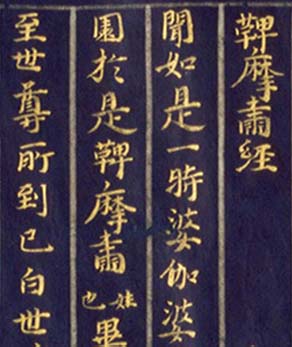 鞞摩肅經
聞如是一時婆伽婆
園於是鞞摩肅姓也異
至世尊所到已白世